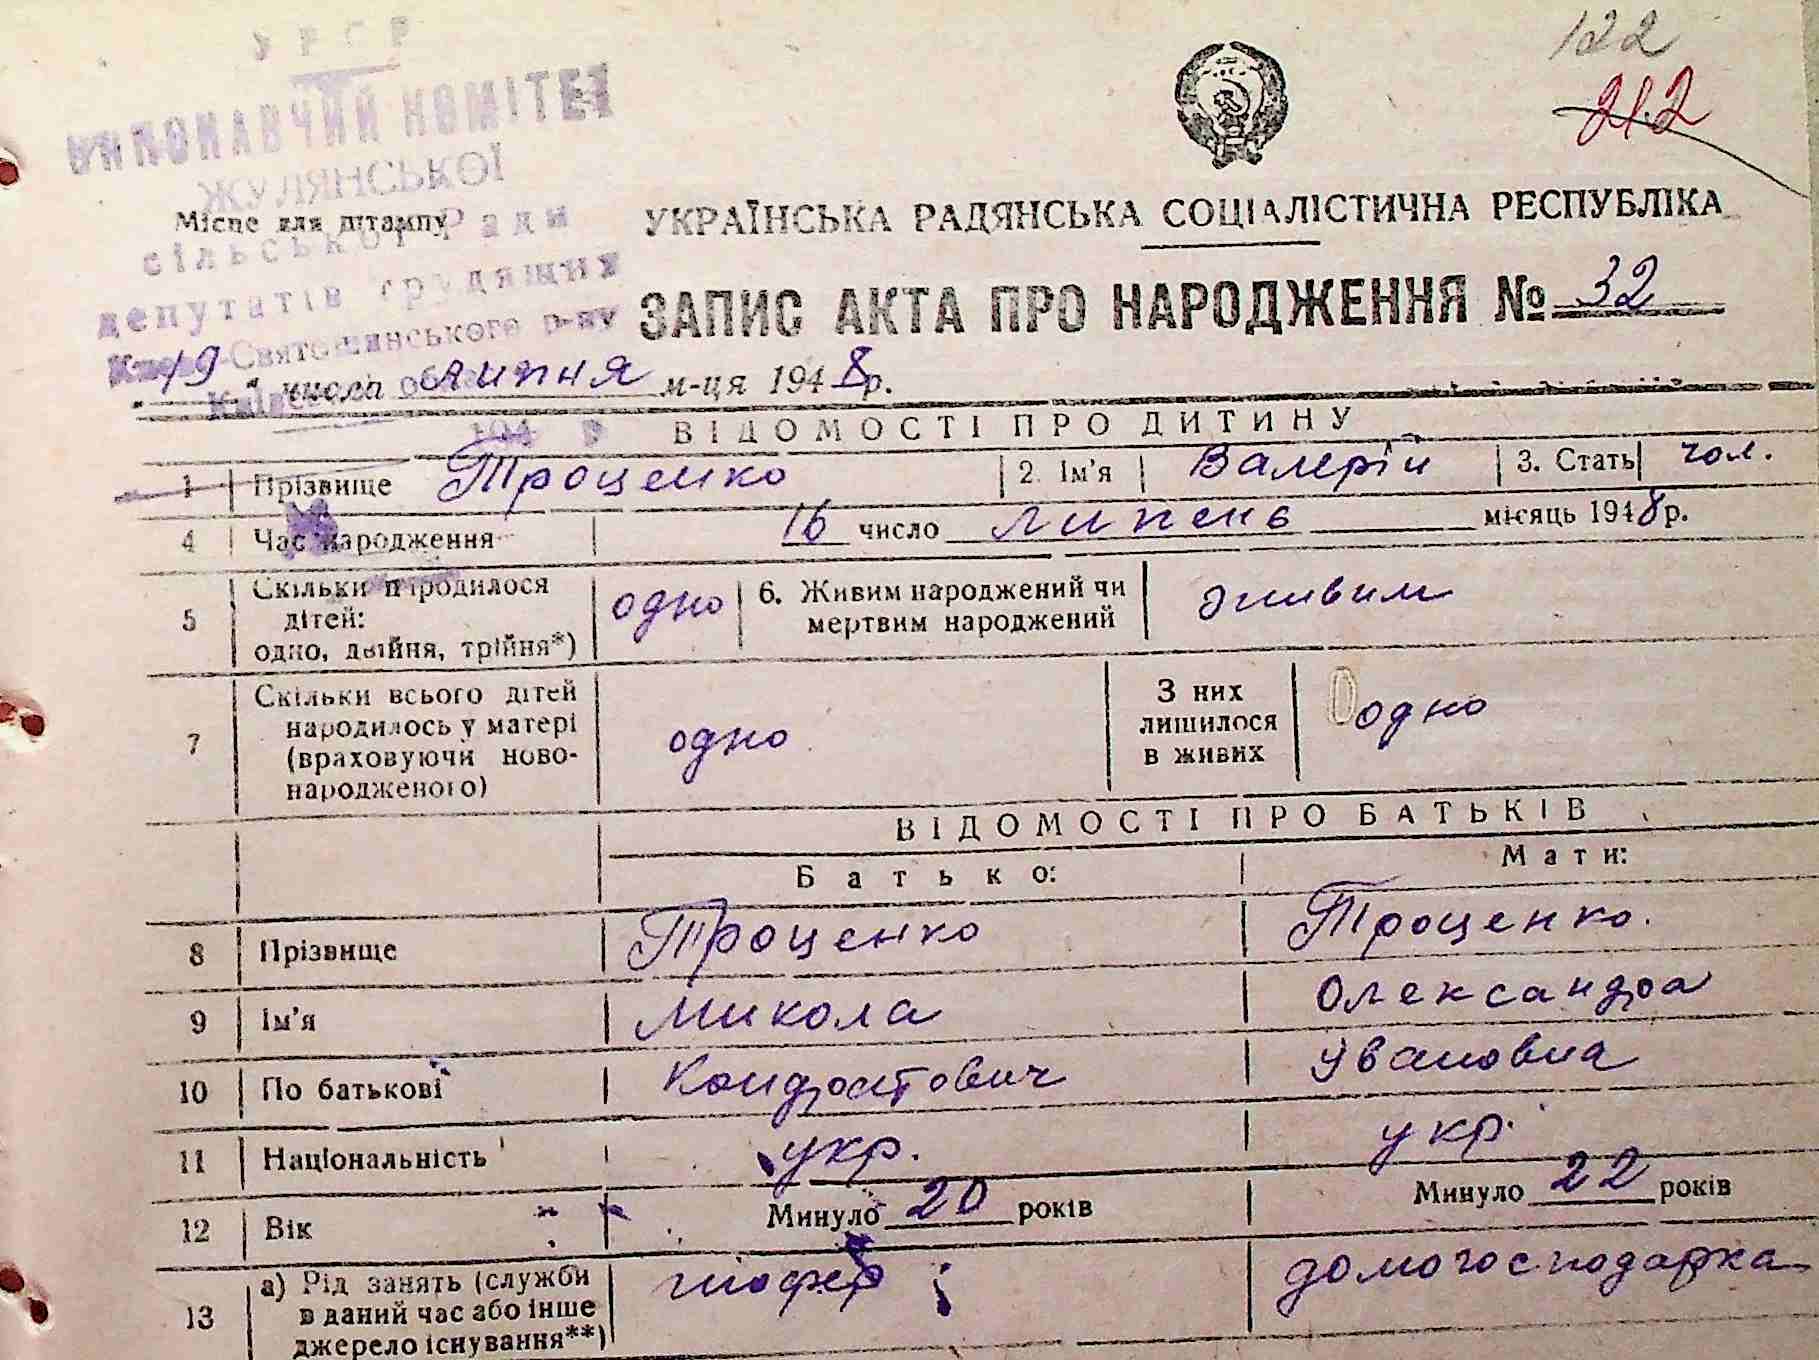 УРСР
ВИКОНАВЧИЙ КОМІТЕТ
ЖУЛЯНСЬКОЇ
сільської Ради
депутатів трудящих
Києво-Святошинського р-ну
Місце для штампу
122
212
УКРАЇНСЬКА РАДЯНСЬКА СОЦІАЛІСТИЧНА РЕСПУБЛІКА
ЗАПИС АКТА ПРО НАРОДЖЕННЯ № 32
„19“ числа липня м-ця 1948 р.
ВІДОМОСТІ ПРО ДИТИНУ
1 Прізвище Троценко 2. Ім'я Валерій 3. Стать чол.
4 Час народження 16 число липень місяць 1948 р.
5 Скільки народилося дітей: одно, двійня, трійня*) одно 6. Живим народжений чи мертвим народжений живим
7 Скільки всього дітей народилось у матері (враховуючи ново-народженого) одно З них лишилося в живих одно
ВІДОМОСТІ ПРО БАТЬКІВ
Батько: Мати:
8 Прізвище Троценко Троценко.
9 Ім'я Микола Олександра
10 По батькові Кондратович Івановна
11 Національність укр. укр.
12 Вік Минуло 20 років Минуло 22 років
13 а) Рід занять (служби в даний час або інше джерело існування**) шофер домогосподарка